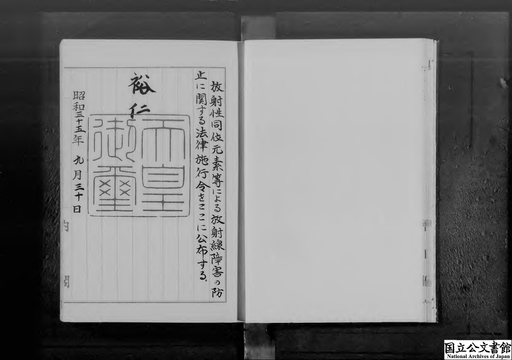 放射性同位元素等による放射線障害の防
止に関する法律施行令をここに公布する。
裕仁
天皇
御璽
昭和三十五年九月三十日
内閣
国立公文書館
National Archives of Japan